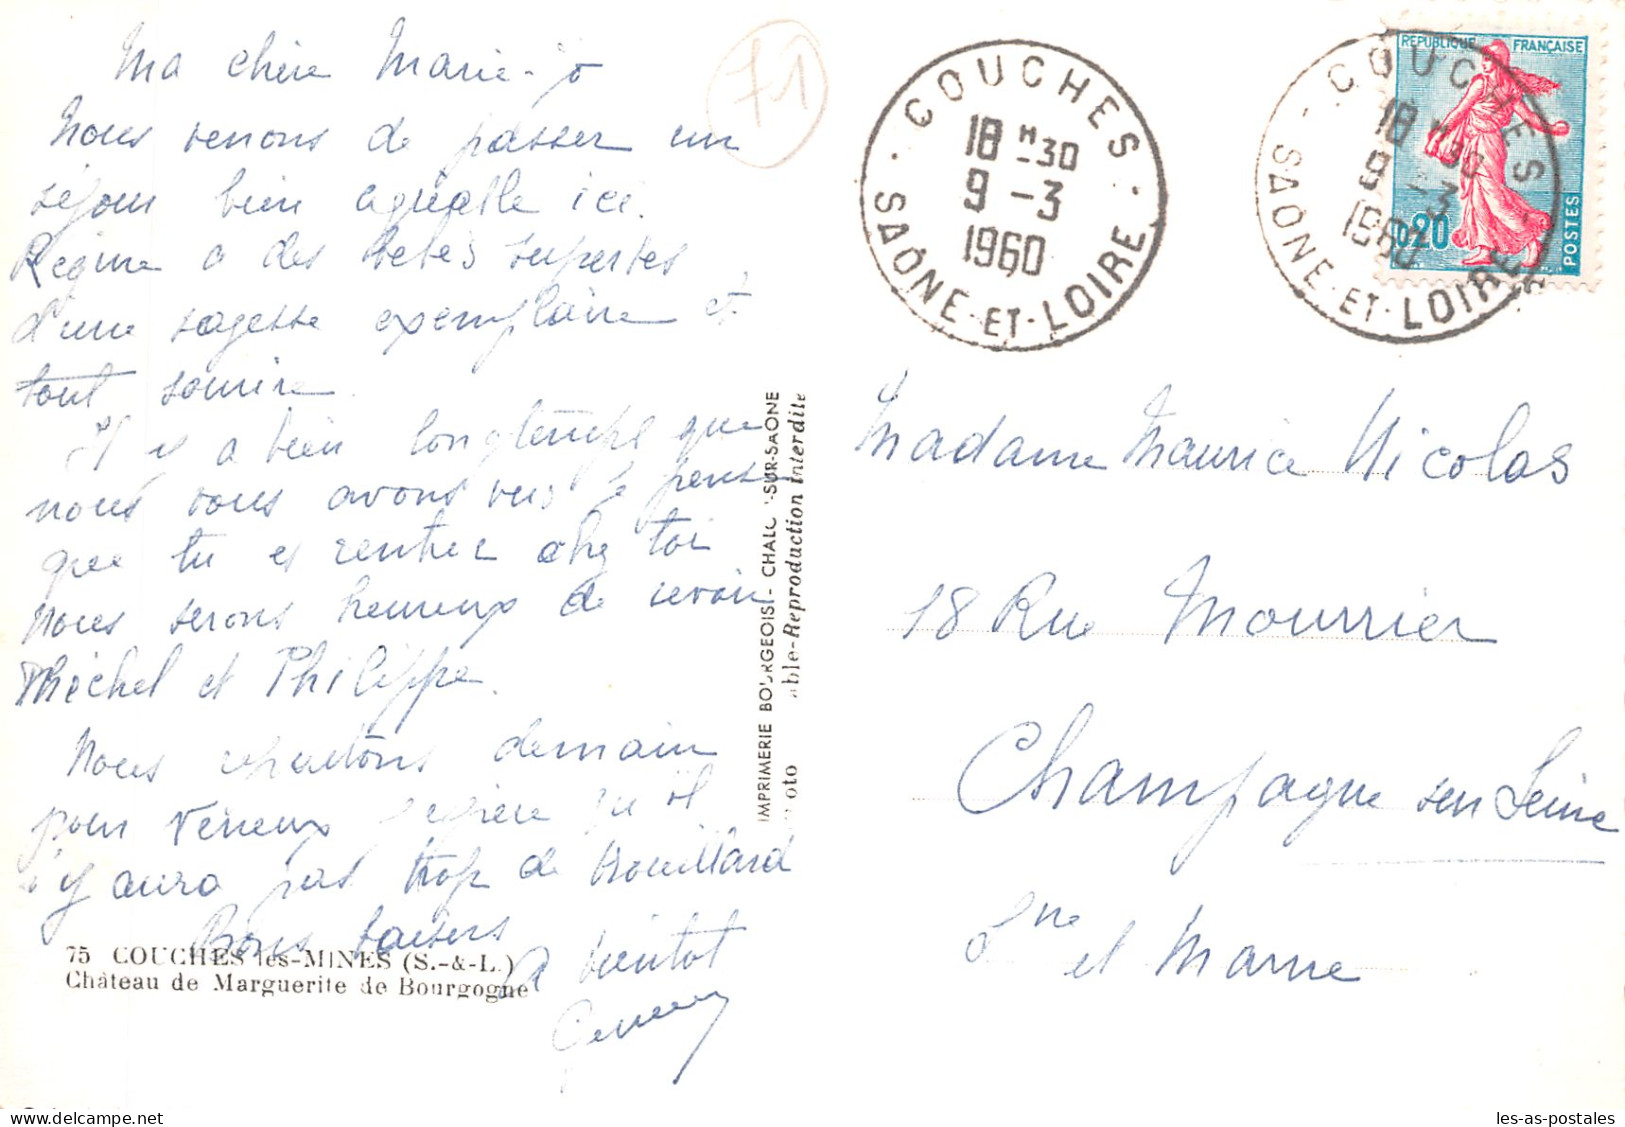 Ma chère Marie-jo
Nous venons de passer un
séjour bien agréable ici.
Régine a des bébés superbes
d'une sagesse exemplaire et
tout sourire.
Il y a bien longtemps que
nous vous avons vus je pense
que tu es rentrée chez toi
nous serons heureux de revoir
Michel et Philippe.
Nous repartons demain
pour Vénieux j'espère qu'il
n'y aura pas trop de brouillard
Bons baisers
A bientôt
75 COUCHES les-MINES (S.-&-L.)
Château de Marguerite de Bourgogne
IMPRIMERIE BOURGEOIS - CHALON-SUR-SAONE
Reproduction interdite
71
COUCHES
18 H 30
9 - 3
1960
SAÔNE-ET-LOIRE
COUCHES
18 H 30
9 - 3
1960
SAÔNE-ET-LOIRE
REPUBLIQUE FRANÇAISE
0,20
POSTES
Madame Maurice Nicolas
18 Rue Mourrier
Champagne sur Seine
Sne et Marne
les-as-postales